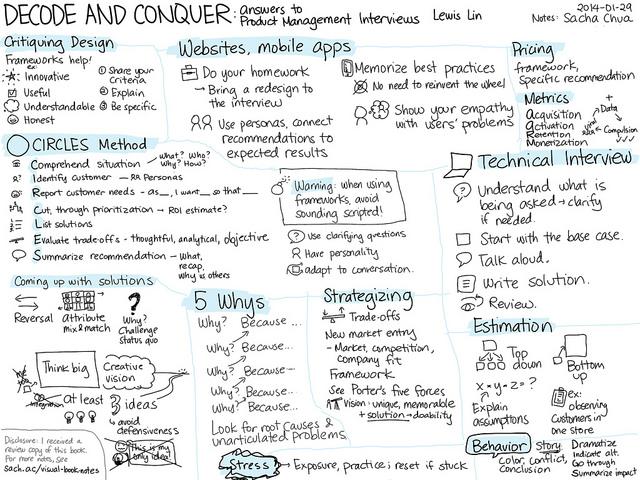 DECODE AND CONQUER: Answers to
Product Management Interviews
Lewis Lin
2014-01-29
Notes: Sacha Chua
Critiquing Design
Frameworks help!
ex:
Innovative
Useful
Understandable
Honest
① Share your
criteria
② Explain
③ Be specific
Websites, mobile apps
Do your homework
→ Bring a redesign to
the interview
Use personas, connect
recommendations to
expected results
Memorize best practices
No need to reinvent the wheel
Show your empathy
with users' problems
Pricing
framework,
specific recommendation
Metrics
Acquisition
Activation
Retention
Monetization
+
Data
Compulsion
CIRCLES Method
Comprehend situation
What? Who?
Why? How?
Identify customer — Personas
Report customer needs - as__, I want__ so that__
Cut, through prioritization → ROI estimate?
List solutions
Evaluate trade-offs - thoughtful, analytical, objective
Summarize recommendation - What,
recap,
why vs others
Warning: when using
frameworks, avoid
sounding scripted!
Use clarifying questions
Have personality
adapt to conversation.
Technical Interview
Understand what is
being asked → clarify
if needed.
Start with the base case.
Talk aloud.
Write solution.
Review.
Coming up with solutions
Reversal
attribute
mix & match
?
Why?
Challenge
status quo
Think big
Creative
vision
integration
At least 3 ideas
↳ avoid
defensiveness
This is my
only idea!
Disclosure: I received a
review copy of this book.
For more notes, see
sach.ac/visual-book-notes
5 Whys
Why? Because ...
Why? Because ...
Why? Because —
Why? Because ...
Why? Because ...
Look for root causes &
unarticulated problems.
Strategizing
Trade-offs
New market entry
- Market, competition,
company fit
Framework
See Porter's five forces
Vision: unique, memorable
+ solution → doability
Stress → Exposure, practice; reset if stuck
Estimation
Top
down
Bottom
up
x - y - z = ?
Explain
assumptions
ex:
observing
customers in
one store
Behavior
Story
Color, conflict,
Conclusion
Dramatize
Indicate alt.
Go through
Summarize impact